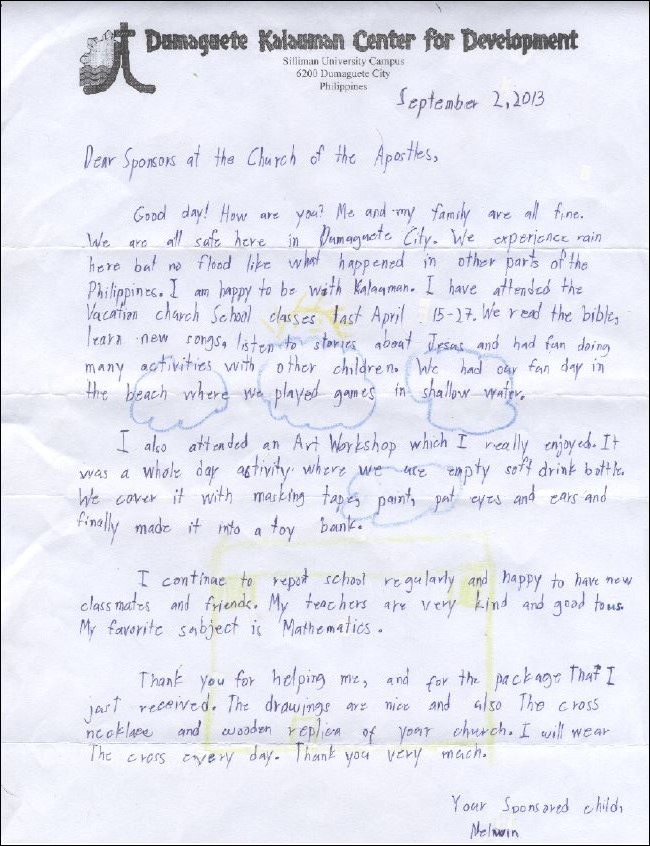 Dumaguete Kalauman Center for Development
Silliman University Campus
6200 Dumaguete City
Philippines
September 2, 2013
Dear Sponsors at the Church of the Apostles,
Good day! How are you? Me and my family are all fine.
We are all safe here in Dumaguete City. We experience rain
here but no flood like what happened in other parts of the
Philippines. I am happy to be with Kalauman. I have attended the
Vacation church School classes last April 15-27. We read the bible,
learn new songs, listen to stories about Jesus and had fun doing
many activities with other children. We had our fun day in
the beach where we played games in shallow water.
I also attended an Art Workshop which I really enjoyed. It
was a whole day activity where we use empty soft drink bottle.
We cover it with masking tape, paint, put eyes and ears and
finally made it into a toy bank.
I continue to report school regularly and happy to have new
classmates and friends. My teachers are very kind and good to us.
My favorite subject is Mathematics.
Thank you for helping me, and for the package That I
just received. The drawings are nice and also The cross
necklace and wooden replica of your church. I will wear
The cross every day. Thank you very much.
Your Sponsored child,
Melwin